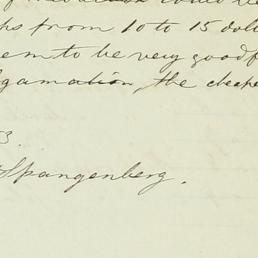 from 10 to 15 doll
to be very good f
gamation, the cheape
3.
Spangenberg.